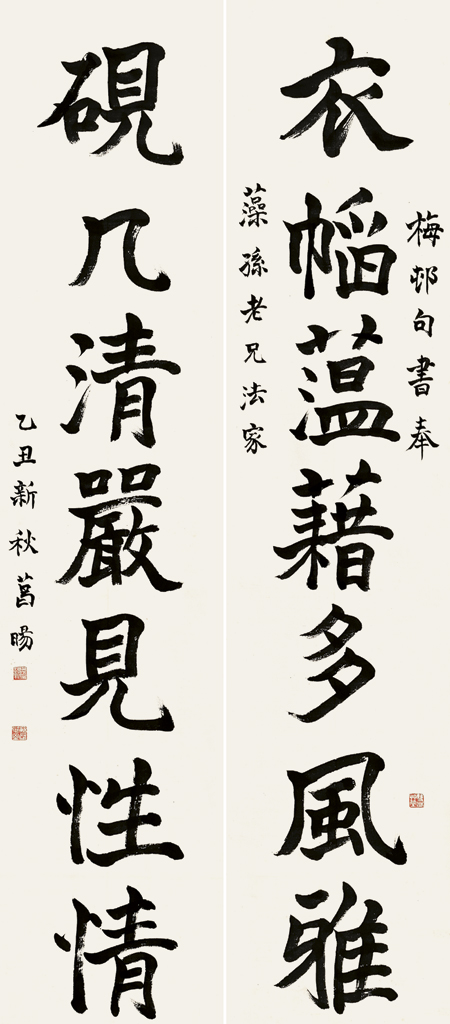 梅邨句書奉
衣幍蕰藉多風雅
藻孫老兄法家
硯几清嚴見性情
乙丑新秋菖暘